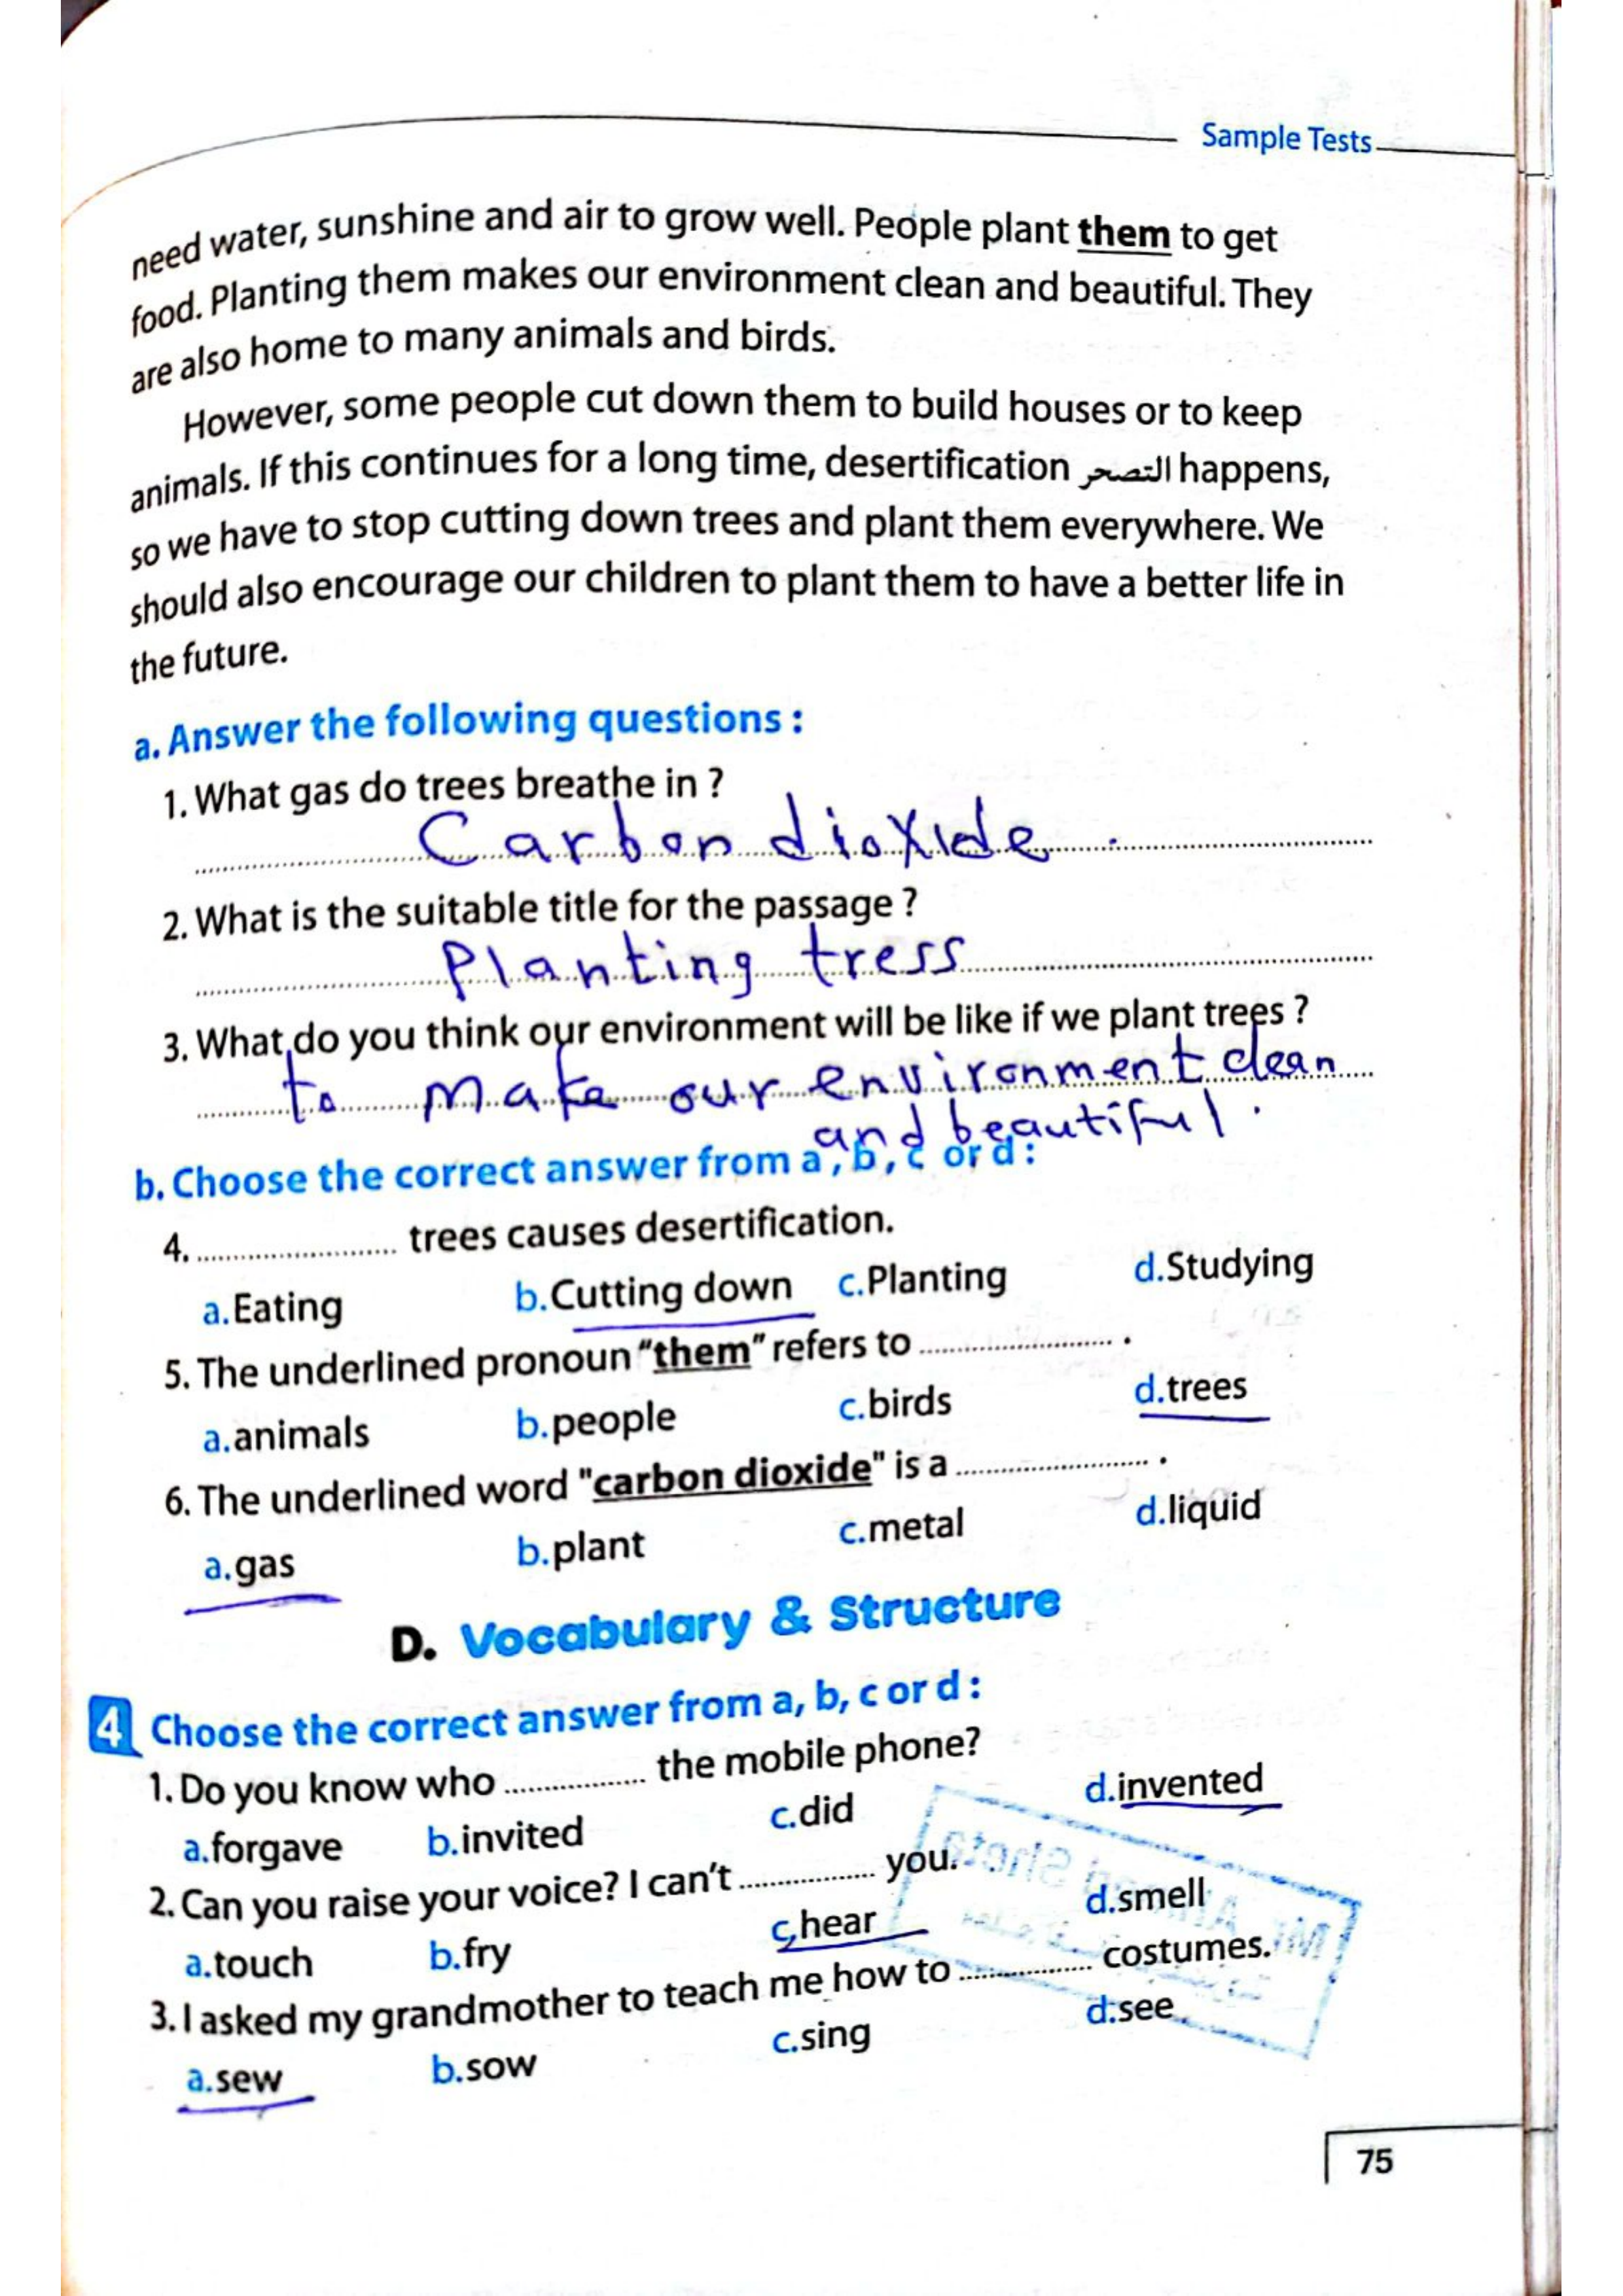 Sample Tests
need water, sunshine and air to grow well. People plant them to get
food. Planting them makes our environment clean and beautiful. They
are also home to many animals and birds.
However, some people cut down them to build houses or to keep
animals. If this continues for a long time, desertification التصحر happens,
so we have to stop cutting down trees and plant them everywhere. We
should also encourage our children to plant them to have a better life in
the future.
a. Answer the following questions :
1. What gas do trees breathe in ?
Carbon dioxide .
2. What is the suitable title for the passage ?
Planting tress
3. What do you think our environment will be like if we plant trees ?
to make our environment clean
and beautiful.
b. Choose the correct answer from a , b , c or d :
4. ........................ trees causes desertification.
a. Eating b. Cutting down c. Planting d. Studying
5. The underlined pronoun “them” refers to ........................ .
a. animals b. people c. birds d. trees
6. The underlined word "carbon dioxide" is a ........................ .
a. gas b. plant c. metal d. liquid
D. Vocabulary & Structure
4 Choose the correct answer from a, b, c or d :
1. Do you know who ................ the mobile phone?
a. forgave b. invited c. did d. invented
2. Can you raise your voice? I can’t ................ you.
a. touch b. fry c. hear d. smell
3. I asked my grandmother to teach me how to ................ costumes.
a. sew b. sow c. sing d. see
75